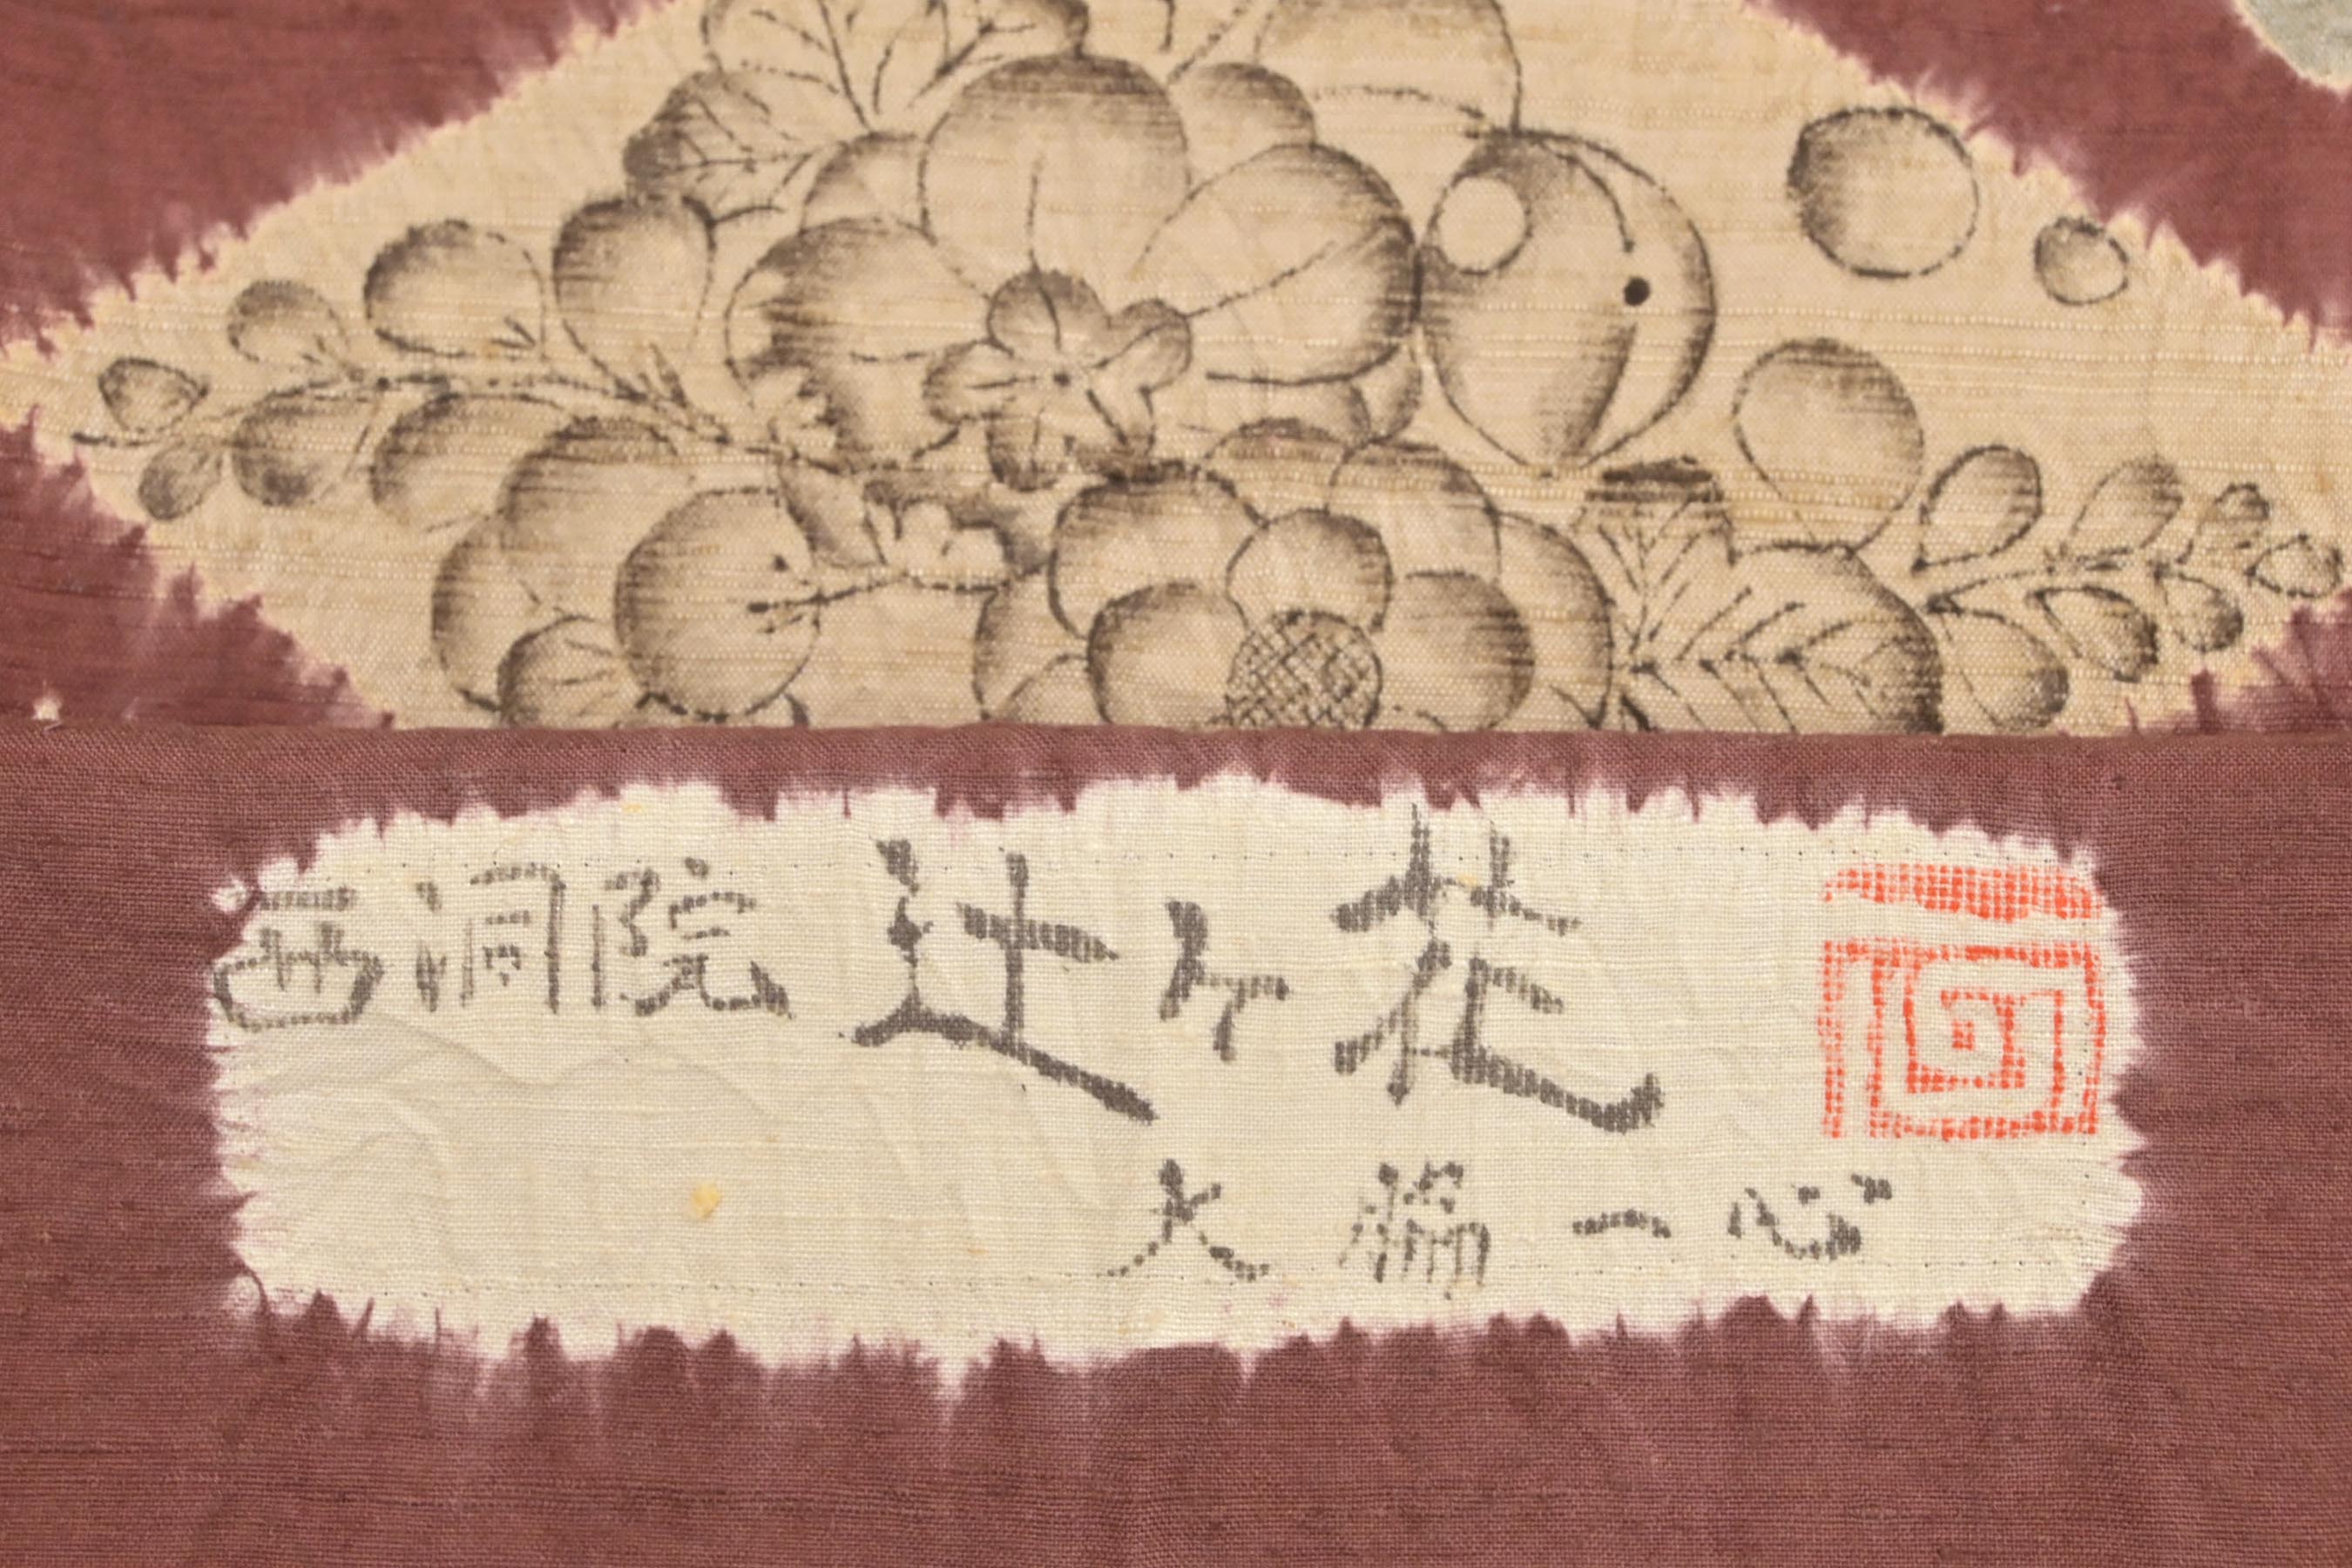 西洞院辻ヶ花
大脇一心